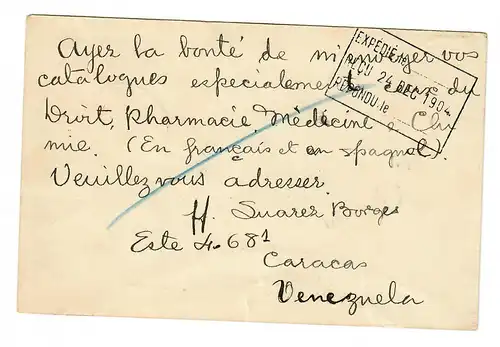 Ayez la bonté de m'envoyer vos
catalogues especialement du
Droit, Pharmacie, Médecine e Chi
mie. (En français et en spagnol).
Veuillez vous adresser.
H. Suarez Borges
Este 4-68¹
Caracas
Venezuela
EXPÉDIÉ le
REÇU 24 DEC 1904
RÉPONDU le